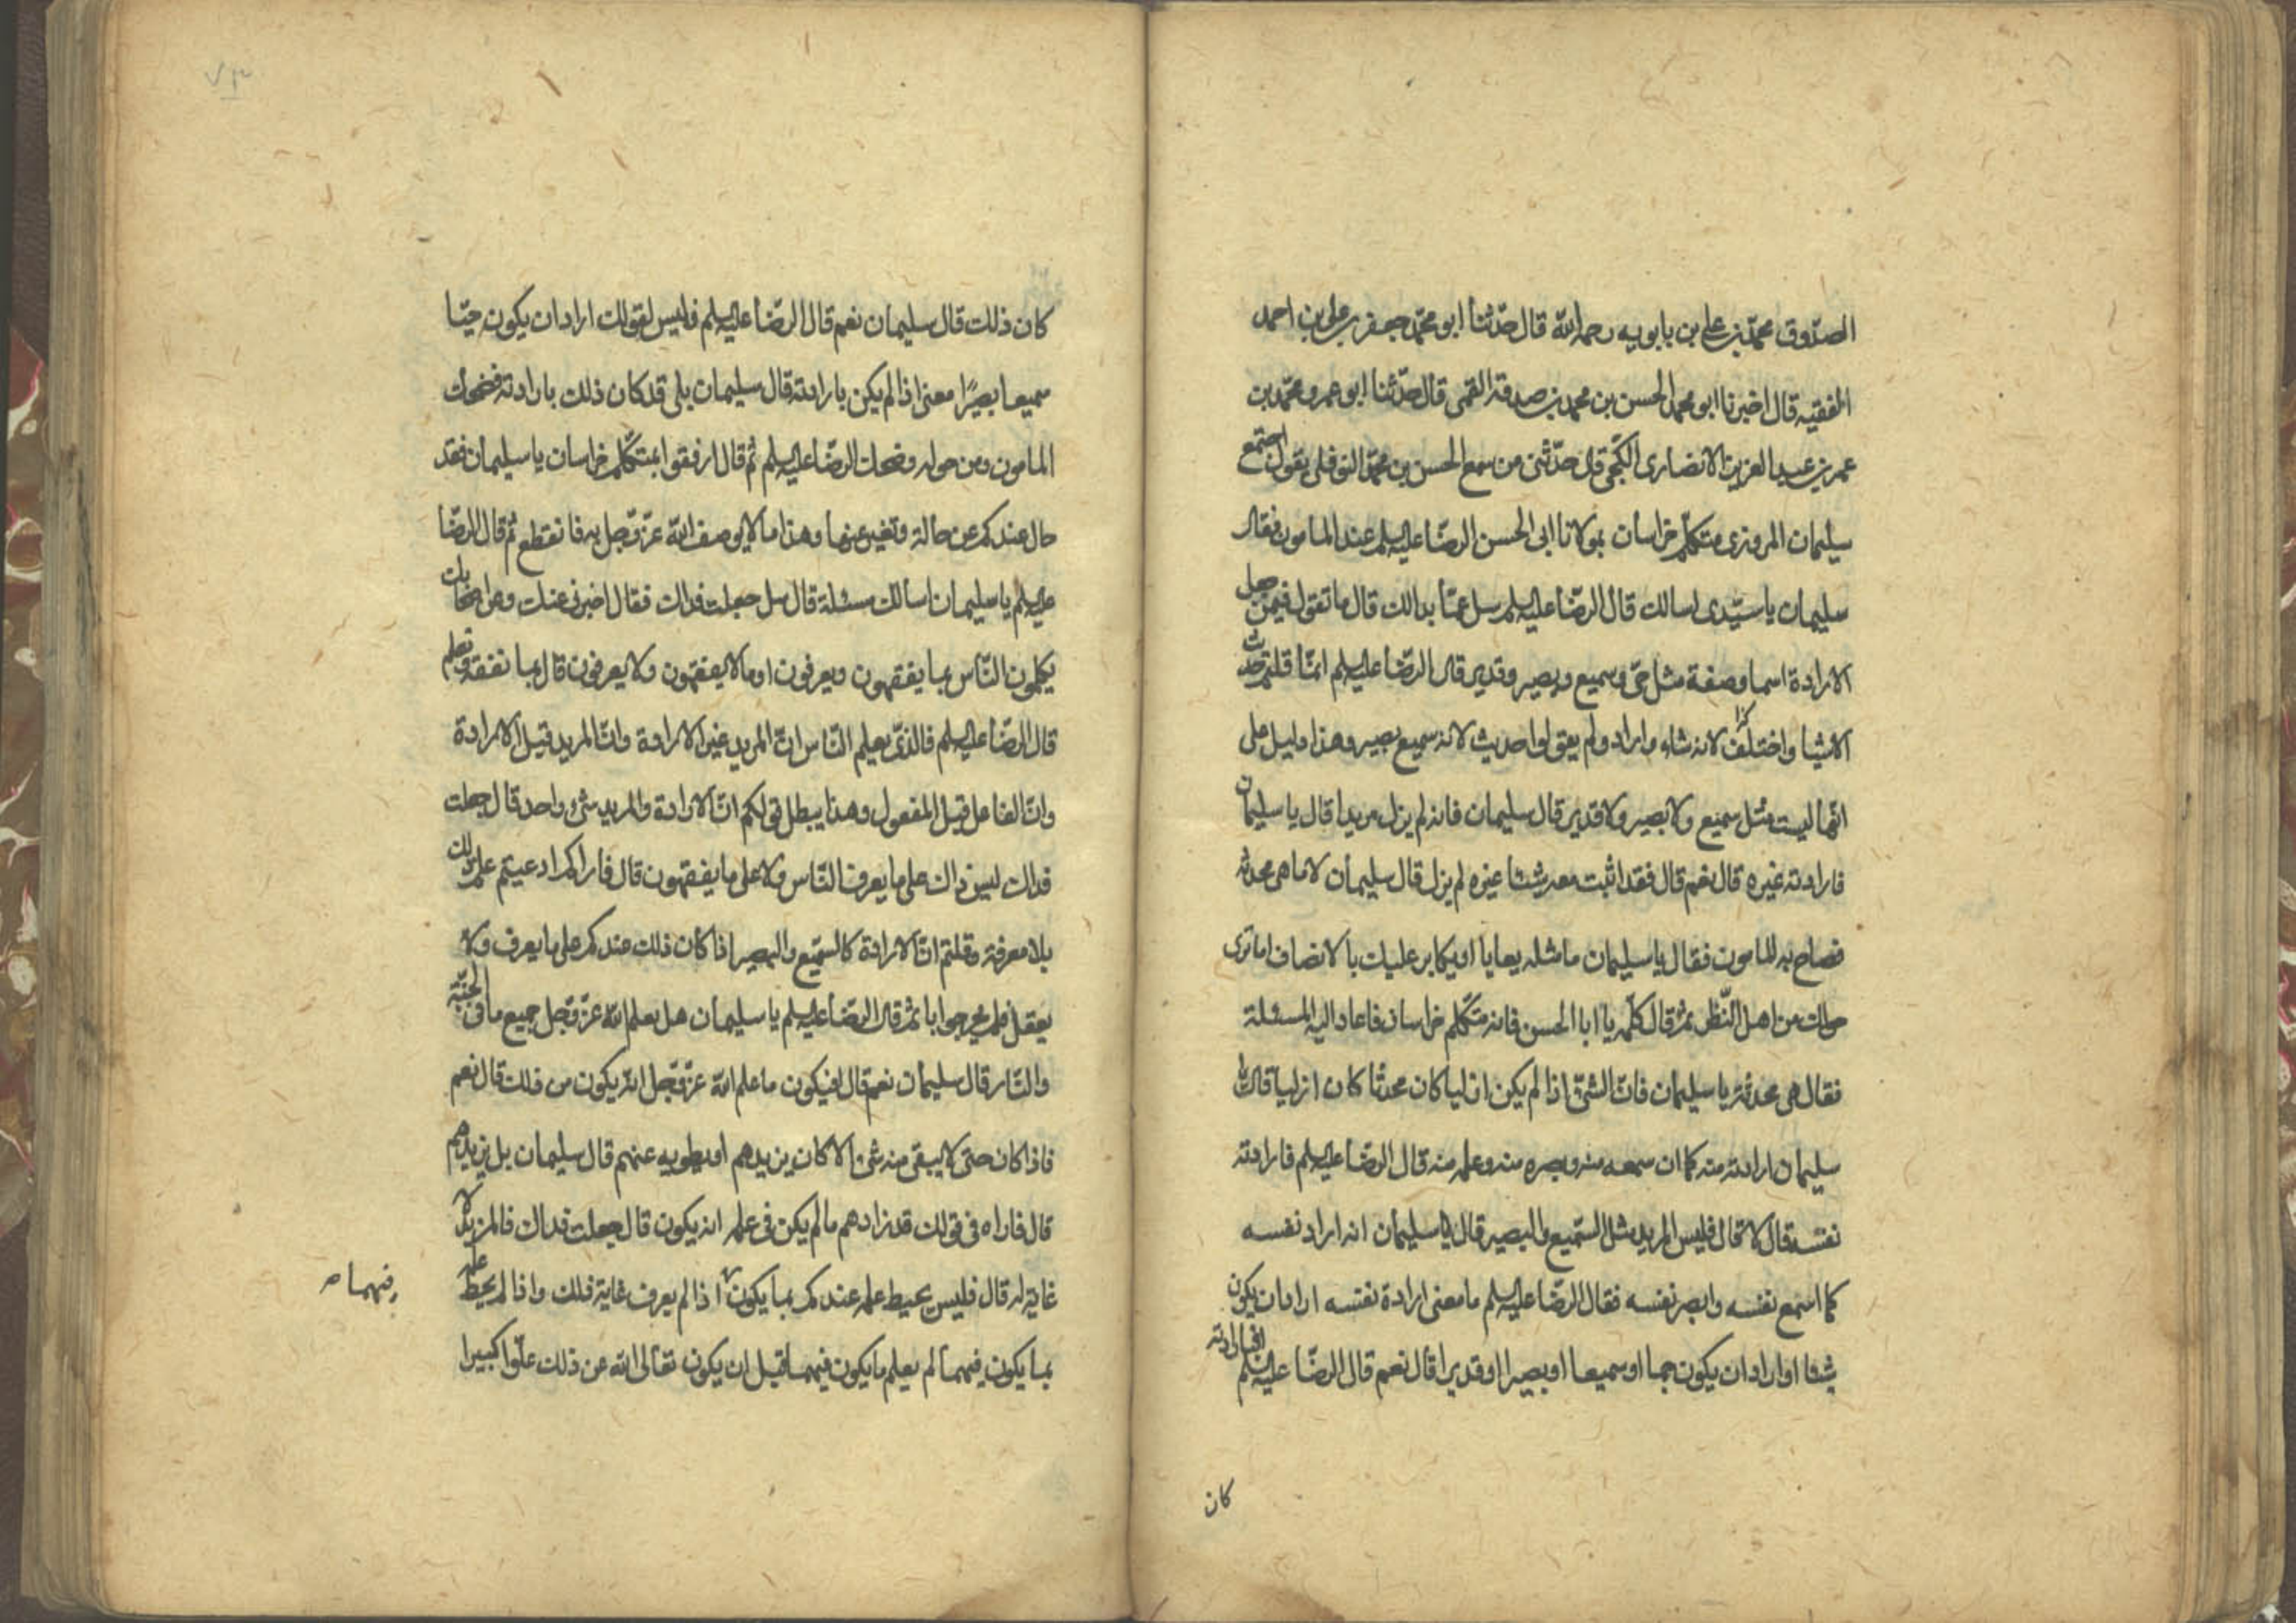 الصدوق محمد بن علي بن بابويه رحمه الله قال حدثنا ابو محمد جعفر بن علي بن احمد
الفقيه قال اخبرنا ابو محمد الحسن بن محمد بن صدقة القمى قال حدثنا ابو عمرو محمد بن
عمر بن عبد العزيز الانصارى الكجى قال حدثنى من سمع الحسن بن محمد النوفلى يقول اجتمع
سليمان المروزى متكلم خراسان بمولانا ابى الحسن الرضا عليه السلم عند المامون فقال
سليمان يا سيدى اسالك قال الرضا عليه السلم سل عما بدالك قال ما تقول فيمن جعل
الارادة اسما وصفة مثل حى وسميع وبصير وقدير قال الرضا عليه السلم انما قلتم حدثت
الاشيا واختلفت لانه شاء واراد ولم يقولوا حديث لانه سميع بصير وهذا دليل على
انها ليست مثل سميع ولا بصير ولا قدير قال سليمان فانه لم يزل مريدا قال يا سليمان
فارادته غيره قال نعم قال فقد اثبت معه شيئا غيره لم يزل قال سليمان لا ما هى محدثه
فصاح به المامون فقال يا سليمان ما مثله يعايا او يكابر عليك بالانصاف اما ترى
حولك من اهل النظر ثم قال كلمه يا ابا الحسن فانه متكلم خراسان فاعاد اليه المسئلة
فقال هى محدثة يا سليمان فان الشئ اذا لم يكن ازليا كان محدثا كان ازليا قال
سليمان ارادته منه كما ان سمعه منه وبصره منه وعلمه منه قال الرضا عليه السلم فارادته
نفسه قال لا قال فليس المريد مثل السميع والبصير قال يا سليمان انه اراد نفسه
كما اسمع نفسه وابصر نفسه فقال الرضا عليه السلم ما معنى ارادة نفسه اراد ان يكون
شيئا او اراد ان يكون حيا او سميعا او بصيرا او قديرا قال نعم قال الرضا عليه السلم افبارادته
كان
كان ذلك قال سليمان نعم قال الرضا عليه السلم فليس لقولك اراد ان يكون حيا
سميعا بصيرا معنى اذا لم يكن بارادته قال سليمان بلى قد كان ذلك بارادته فضحك
المامون ومن حوله وضحك الرضا عليه السلم ثم قال ارفقوا بمتكلم خراسان يا سليمان فقد
حال عندكم عن حالة وتغير عنها وهذا ما لا يوصف الله عز وجل به فانقطع ثم قال الرضا
عليه السلم يا سليمان اسالك مسئلة قال سل جعلت فداك فقال اخبرنى عنك وعن اصحابك
يكلمون الناس بما يفقهون ويعرفون او ما لا يفقهون ولا يعرفون قال بما نفقه ونعلم
قال الرضا عليه السلم فالذى يعلم الناس ان المريد غير الارادة وان المريد قبل الارادة
وان الفاعل قبل المفعول وهذا يبطل قولكم ان الارادة والمريد شئ واحد قال جعلت
فداك ليس ذاك على ما يعرف الناس ولا على ما يفقهون قال فاراكم ادعيتم علم ذلك
بلا معرفة وقلتم ان الارادة كالسميع والبصير اذا كان ذلك عندكم على ما يعرف ولا
يعقل فلم يحر جوابا ثم قال الرضا عليه السلم يا سليمان هل يعلم الله عز وجل جميع ما فى الجنة
والنار قال سليمان نعم قال افيكون ما علم الله عز وجل انه يكون من ذلك قال نعم
فاذا كان حتى لا يبقى منه شئ الا كان يزيدهم او يطويه عنهم قال سليمان بل يزيدهم
قال فاراه فى قولك قد زادهم ما لم يكن فى علمه انه يكون قال جعلت فداك فالمزيد لا
غاية له قال فليس يحيط علمه عندكم بما يكون اذا لم يعرف غاية ذلك واذا لم يحط علمه
فيهما صح
بما يكون فيهما لم يعلم ما يكون فيهما قبل ان يكون تعالى الله عن ذلك علوا كبيرا